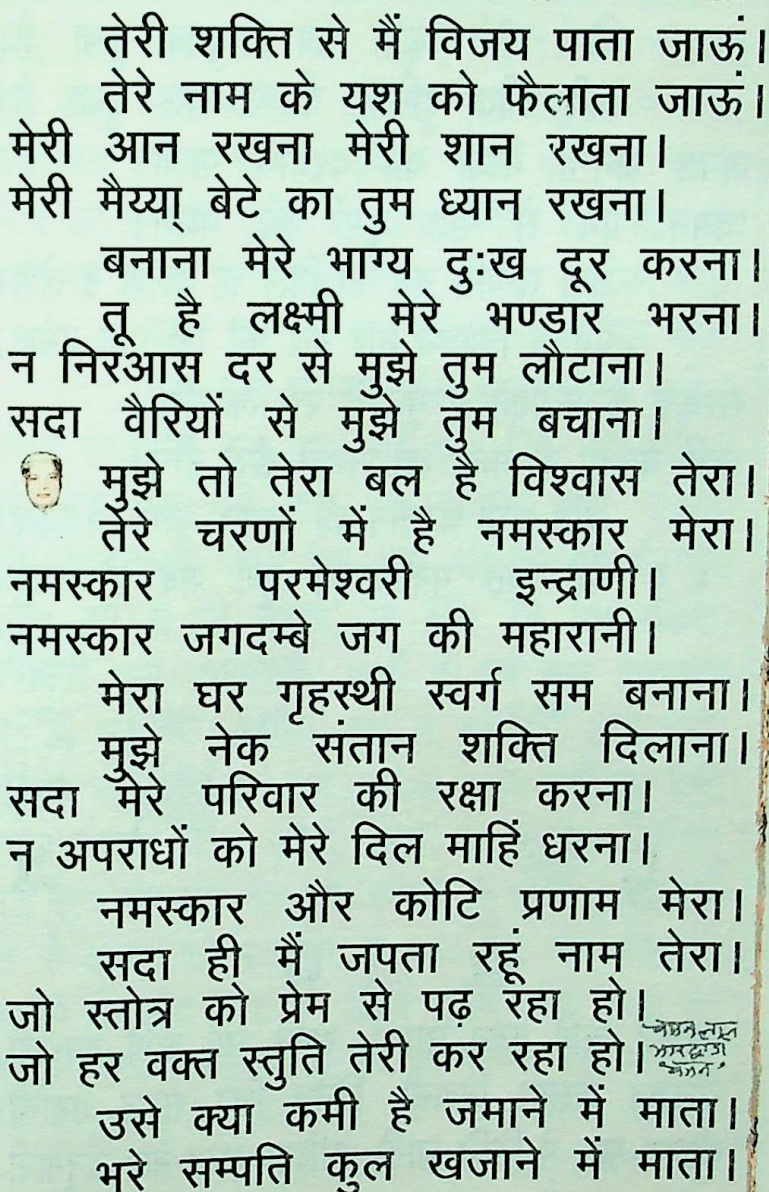 तेरी शक्ति से मैं विजय पाता जाऊं।
तेरे नाम के यश को फैलाता जाऊं।
मेरी आन रखना मेरी शान रखना।
मेरी मैय्या् बेटे का तुम ध्यान रखना।
बनाना मेरे भाग्य दुःख दूर करना।
तू है लक्ष्मी मेरे भण्डार भरना।
न निरआस दर से मुझे तुम लौटाना।
सदा वैरियों से मुझे तुम बचाना।
मुझे तो तेरा बल है विश्वास तेरा।
तेरे चरणों में है नमस्कार मेरा।
नमस्कार परमेश्वरी इन्द्राणी।
नमस्कार जगदम्बे जग की महारानी।
मेरा घर गृहस्थी स्वर्ग सम बनाना।
मुझे नेक संतान शक्ति दिलाना।
सदा मेरे परिवार की रक्षा करना।
न अपराधों को मेरे दिल माहिं धरना।
नमस्कार और कोटि प्रणाम मेरा।
सदा ही मैं जपता रहूं नाम तेरा।
जो स्तोत्र को प्रेम से पढ़ रहा हो।
जो हर वक्त स्तुति तेरी कर रहा हो।
चमनलाल
भारद्वाज
'चमन'
उसे क्या कमी है जमाने में माता।
भरे सम्पति कुल खजाने में माता।